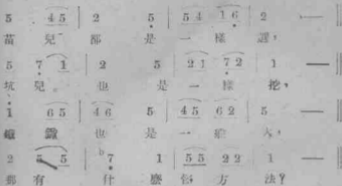 5 45 | 2 5 | 54 16 | 2 —
苗兒都是一樣選，
5 7 1 | 2 5 | 21 72 | 1 —
坑兒也是一樣挖，
1 65 | 46 5 | 45 62 | 5 —
也是一大，
2 5 5 | ♭7 1 | 55 22 | 1 —
有什麼方法？